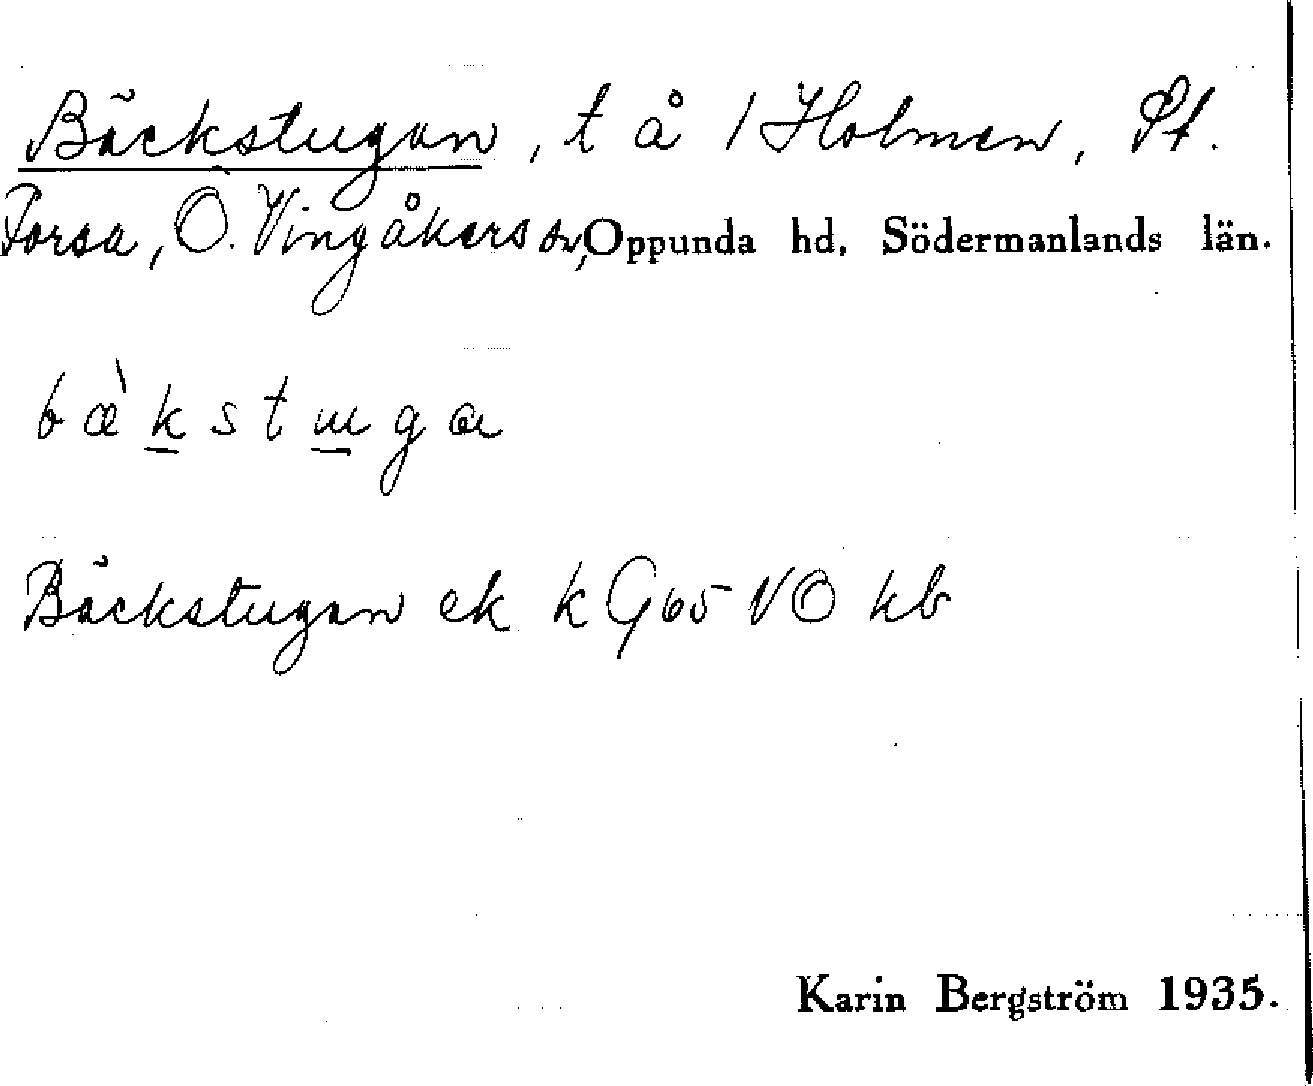 Bäckstugan, t å 1 Holmen, St.
Forsa, Ö. Vingåkers sn, Oppunda hd, Södermanlands län.
bæ̀kstuga
Bäckstugan ek k G65 NO kb
Karin Bergström 1935.